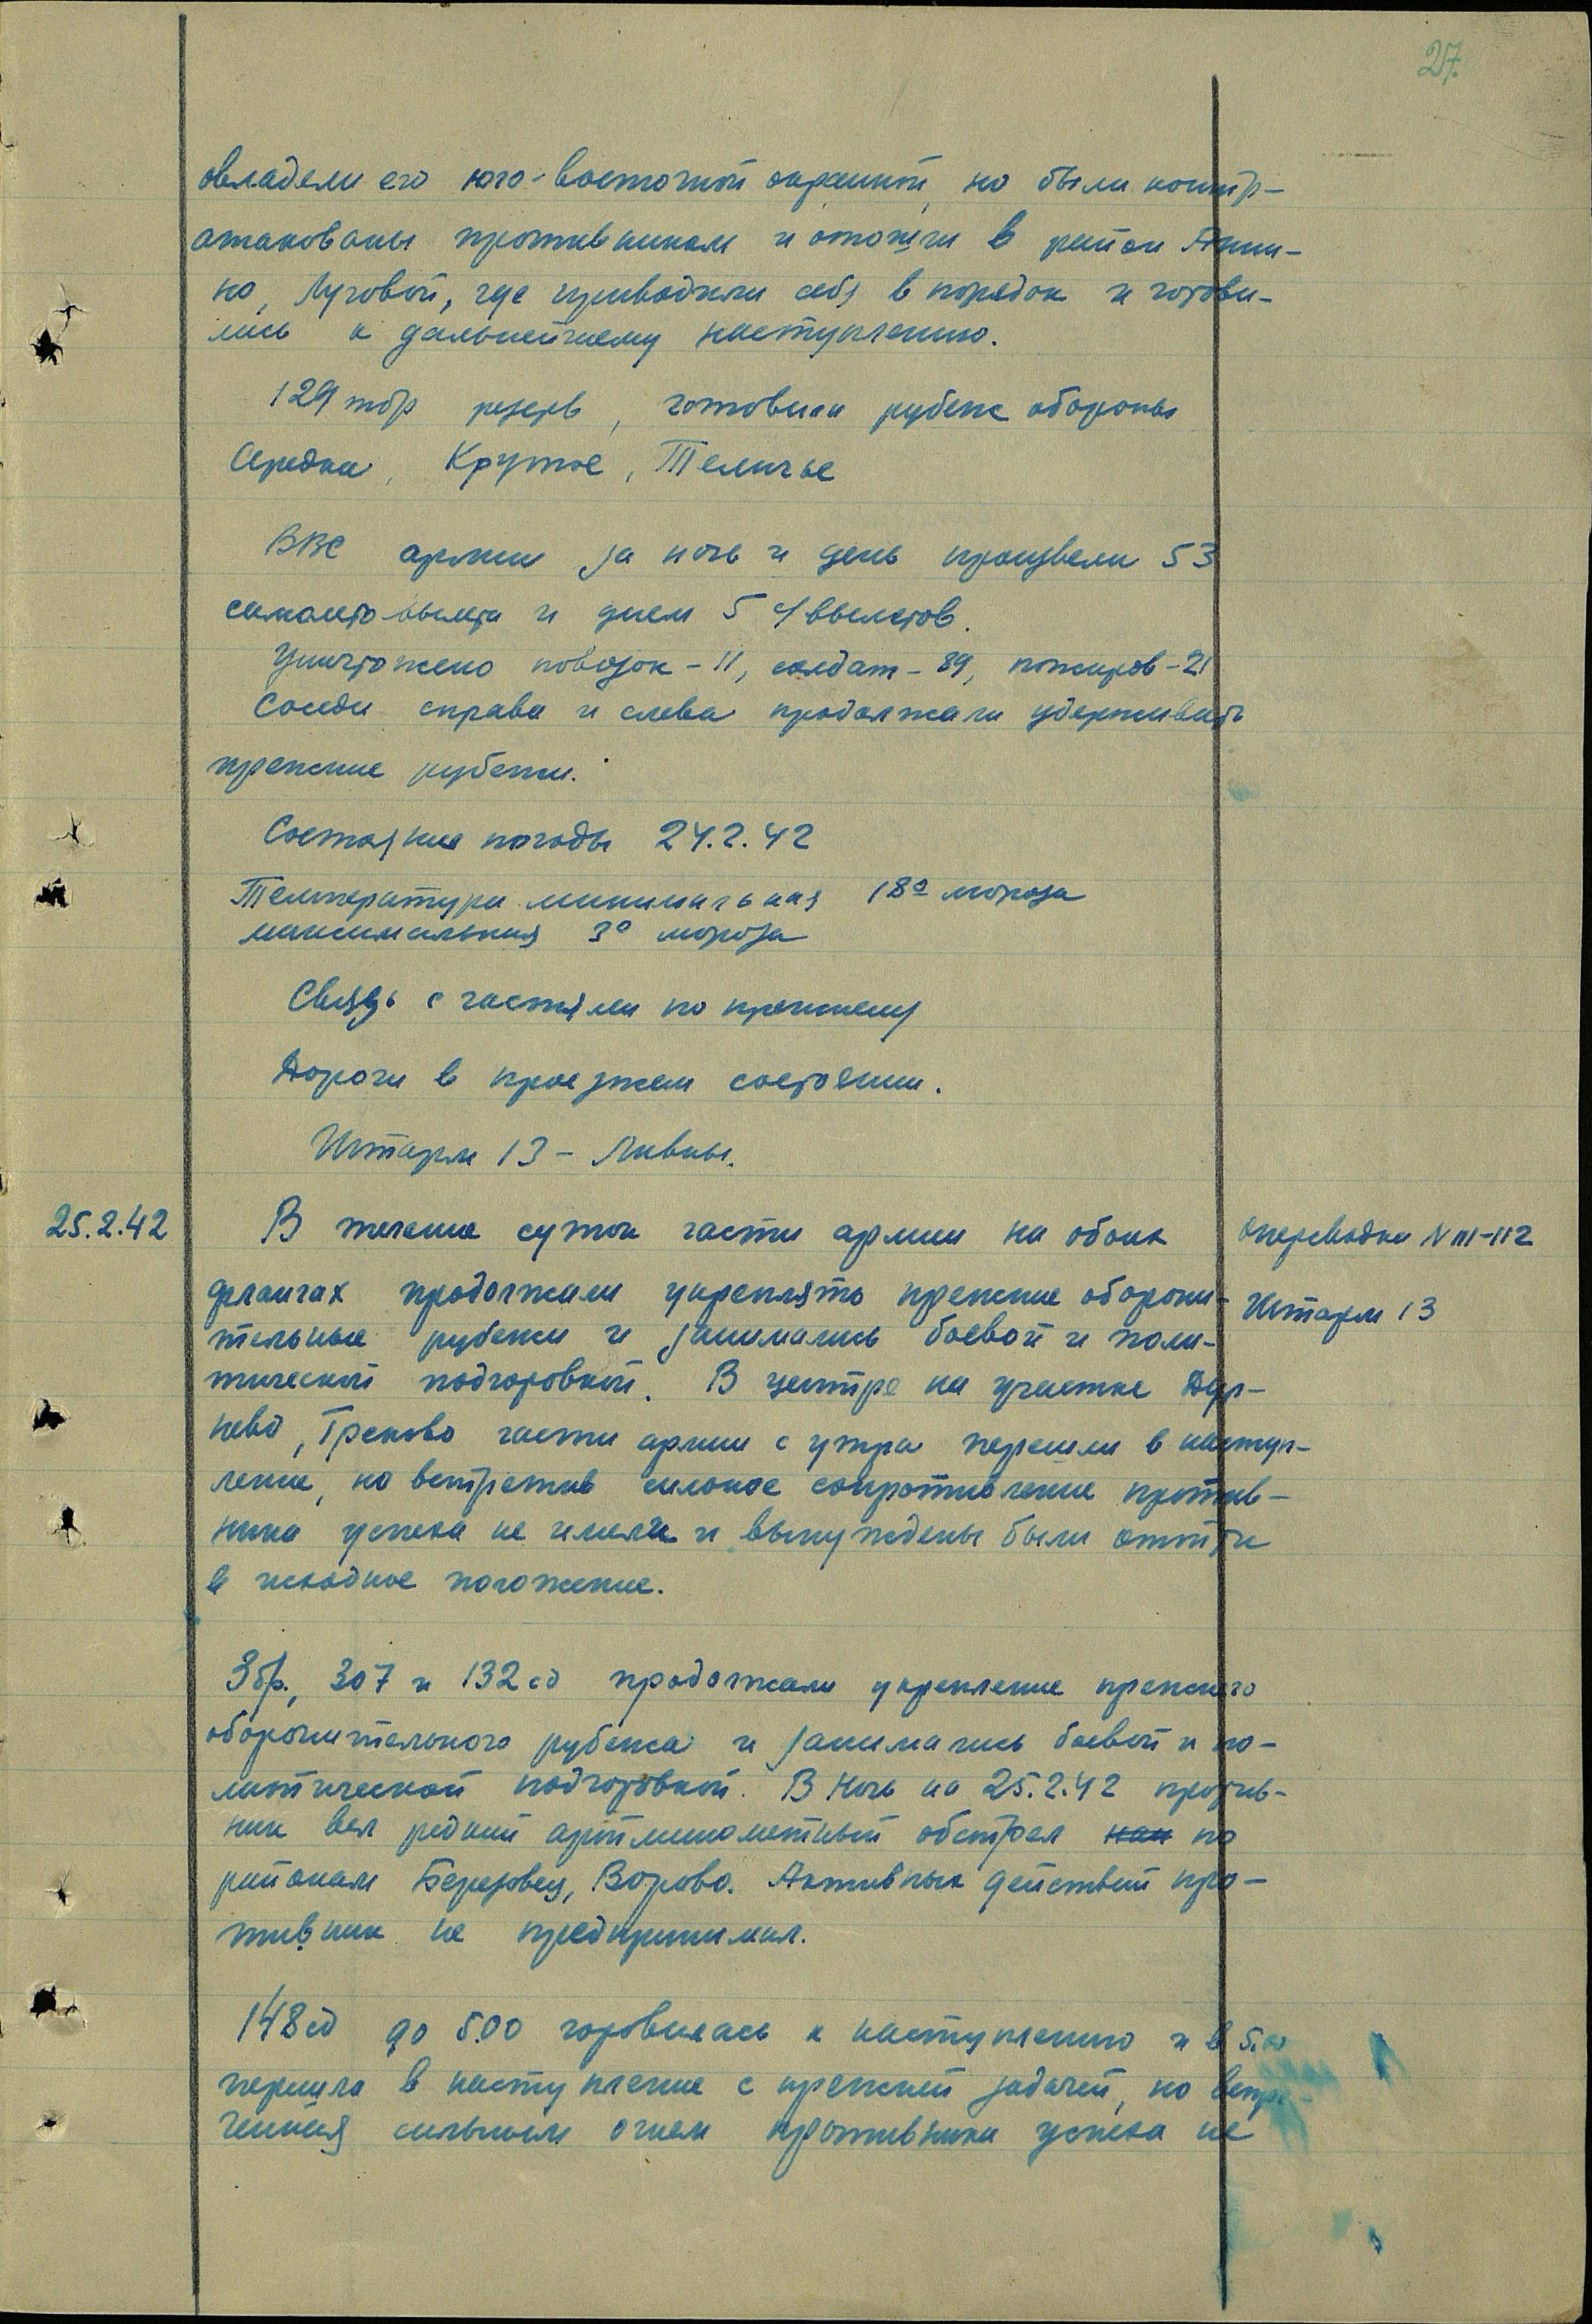 27.
овладели его юго-восточной окраиной, но были контр-
атакованы противником и отошли в район Ани-
но, Луговой, где приводили себя в порядок и готови-
лись к дальнейшему наступлению.
129 тбр резерв, готовила рубеж обороны
Середка, Крутое, Теличье
ВВС армии за ночь и день произвели 53
самолето-вылета и днем 5 вылетов.
Уничтожено повозок - 11, солдат - 89, пожаров - 21
Соседи справа и слева продолжали удерживать
прежние рубежи.
Состояние погоды 24.2.42
Температура минимальная 18° мороза
максимальная 3° мороза
Связь с частями по прежнему
Дороги в проезжем состоянии.
Штарм 13 - Ливны.
25.2.42
В течение суток части армии на обоих
флангах продолжали укреплять прежние оборони-
тельные рубежи и занимались боевой и поли-
тической подготовкой. В центре на участке
нево, Греково части армии с утра перешли в наступ-
ление, но встретив сильное сопротивление против-
ника успеха не имели и вынуждены были отойти
в исходное положение.
Оперсводки N 111-112
Штарм 13
3 бр., 307 и 132 сд продолжали укрепление прежнего
оборонительного рубежа и занимались боевой и по-
литической подготовкой. В ночь на 25.2.42 против-
ник вел редкий артминометный обстрел по
районам Березовец, Ворово. Активных действий про-
тивник не предпринимал.
148 сд до 5.00 готовилась к наступлению и в 5.00
перешла в наступление с прежней задачей, но встре-
ченная сильным огнем противника успеха не